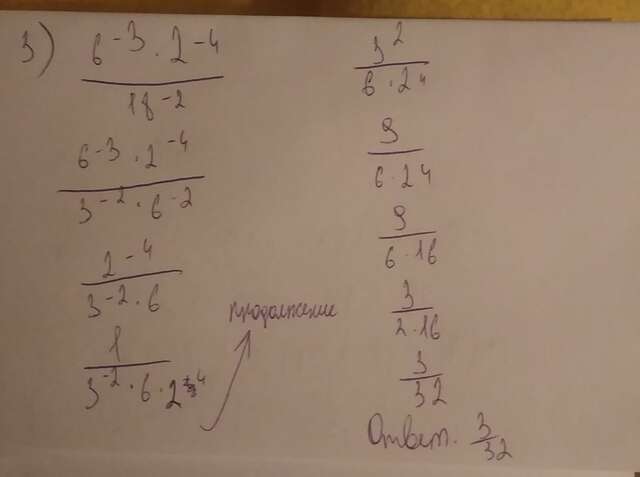 3) 6^-3 · 2^-4 / 18^-2
6^-3 · 2^-4 / 3^-2 · 6^-2
2^-4 / 3^-2 · 6
1 / 3^-2 · 6 · 2^4
продолжение
3^2 / 6 · 2^4
9 / 6 · 2^4
9 / 6 · 16
3 / 2 · 16
3 / 32
Ответ. 3/32